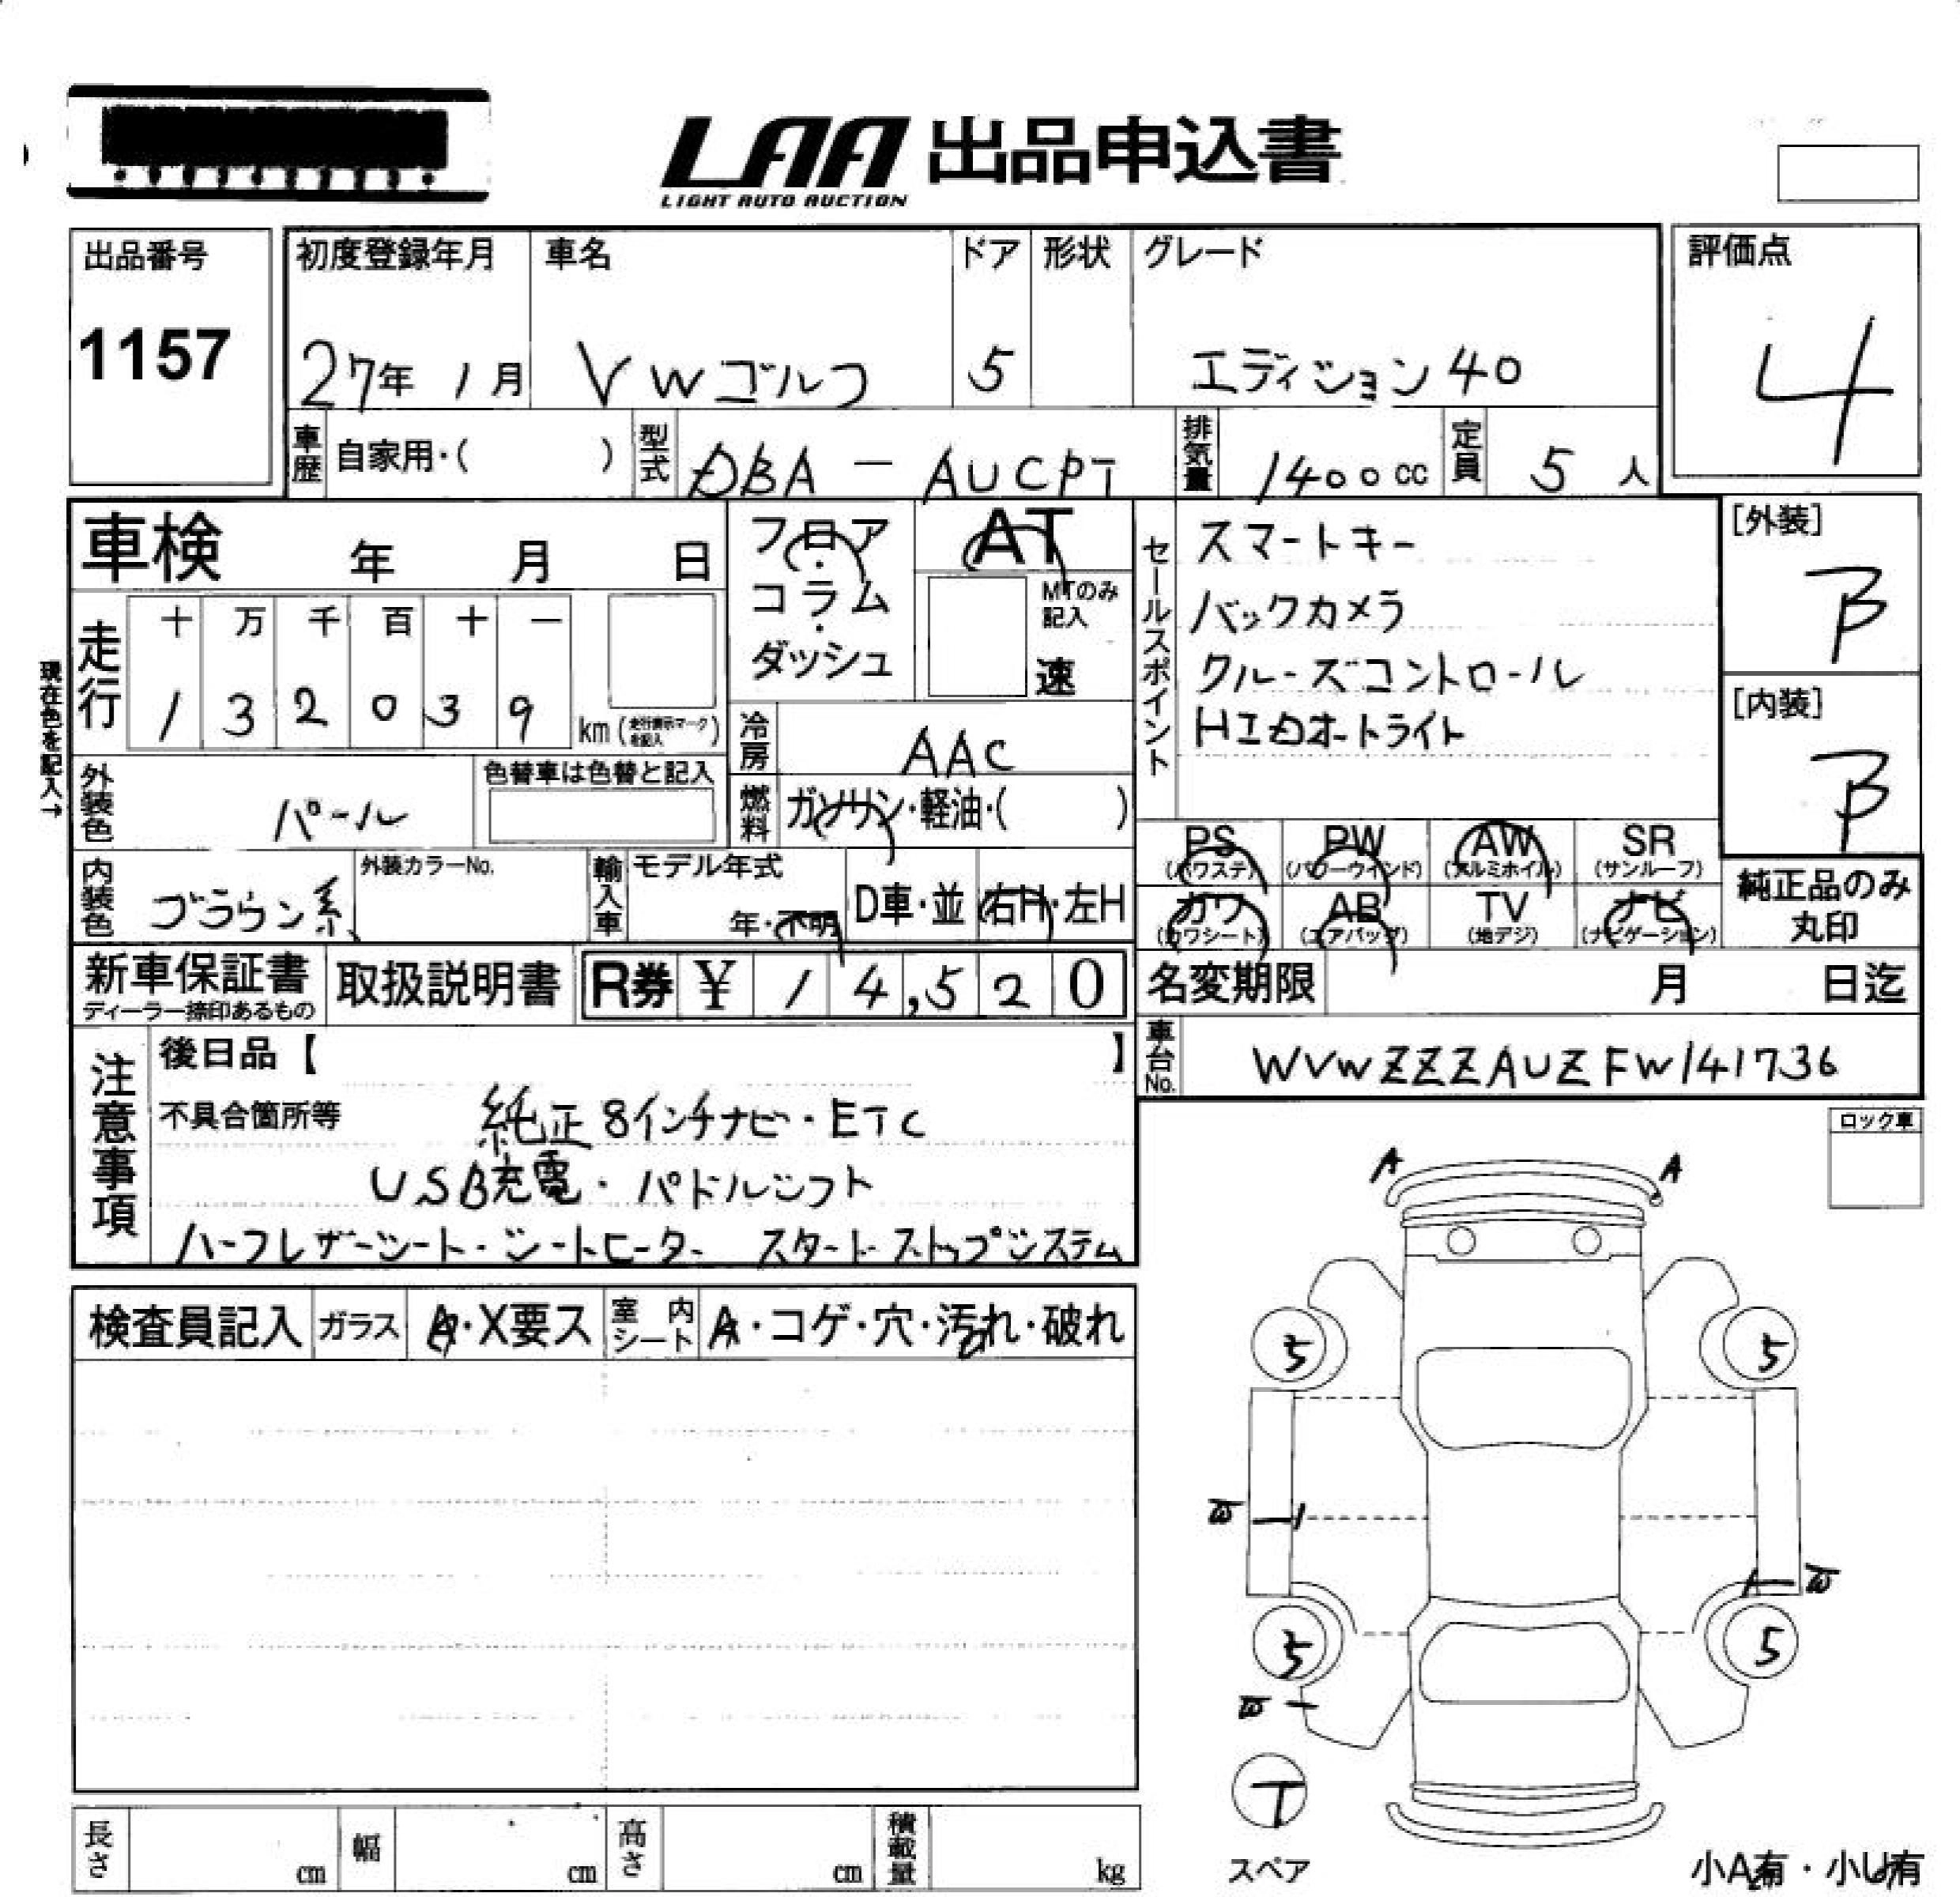 LAA 出品申込書
LIGHT AUTO AUCTION
出品番号 1157
初度登録年月 27年 1月
車名 VWゴルフ
ドア 5
形状
グレード エディション40
評価点 4
車歴 自家用・( )
型式 DBA-AUCPT
排気量 1400cc
定員 5人
車検 年 月 日
フロア・コラム・ダッシュ
AT
MTのみ記入
速
セールスポイント
スマートキー
バックカメラ
クルーズコントロール
HIDオートライト
[外装] B
[内装] B
現在色を記入→
走行 十 万 千 百 十 一
1 3 2 0 3 9 km (走行表示マークを記入)
冷房 AAC
外装色 パール
色替車は色替と記入
燃料 ガソリン・軽油・( )
PS (パワステ) PW (パワーウインド) AW (アルミホイル) SR (サンルーフ)
カワ (カワシート) AB (エアバッグ) TV (地デジ) ナビ (ナビゲーション)
純正品のみ丸印
内装色 ブラウン系
外装カラーNo.
輸入車 モデル年式 年・不明
D車・並 右H・左H
新車保証書 ディーラー捺印あるもの
取扱説明書
R券 ¥ 14,520
名変期限 月 日迄
車台No. WVWZZZAUZFW141736
注意事項
後日品【 】
不具合箇所等
純正8インチナビ・ETC
USB充電・パドルシフト
ハーフレザーシート・シートヒーター スタートストップシステム
ロック車
検査員記入 ガラス A・X要ス 室内シート A・コゲ・穴・汚れ・破れ
A A
5 5
W
W
5 5
W
T
スペア
小A有・小U有
長さ cm 幅 cm 高さ cm 積載量 kg